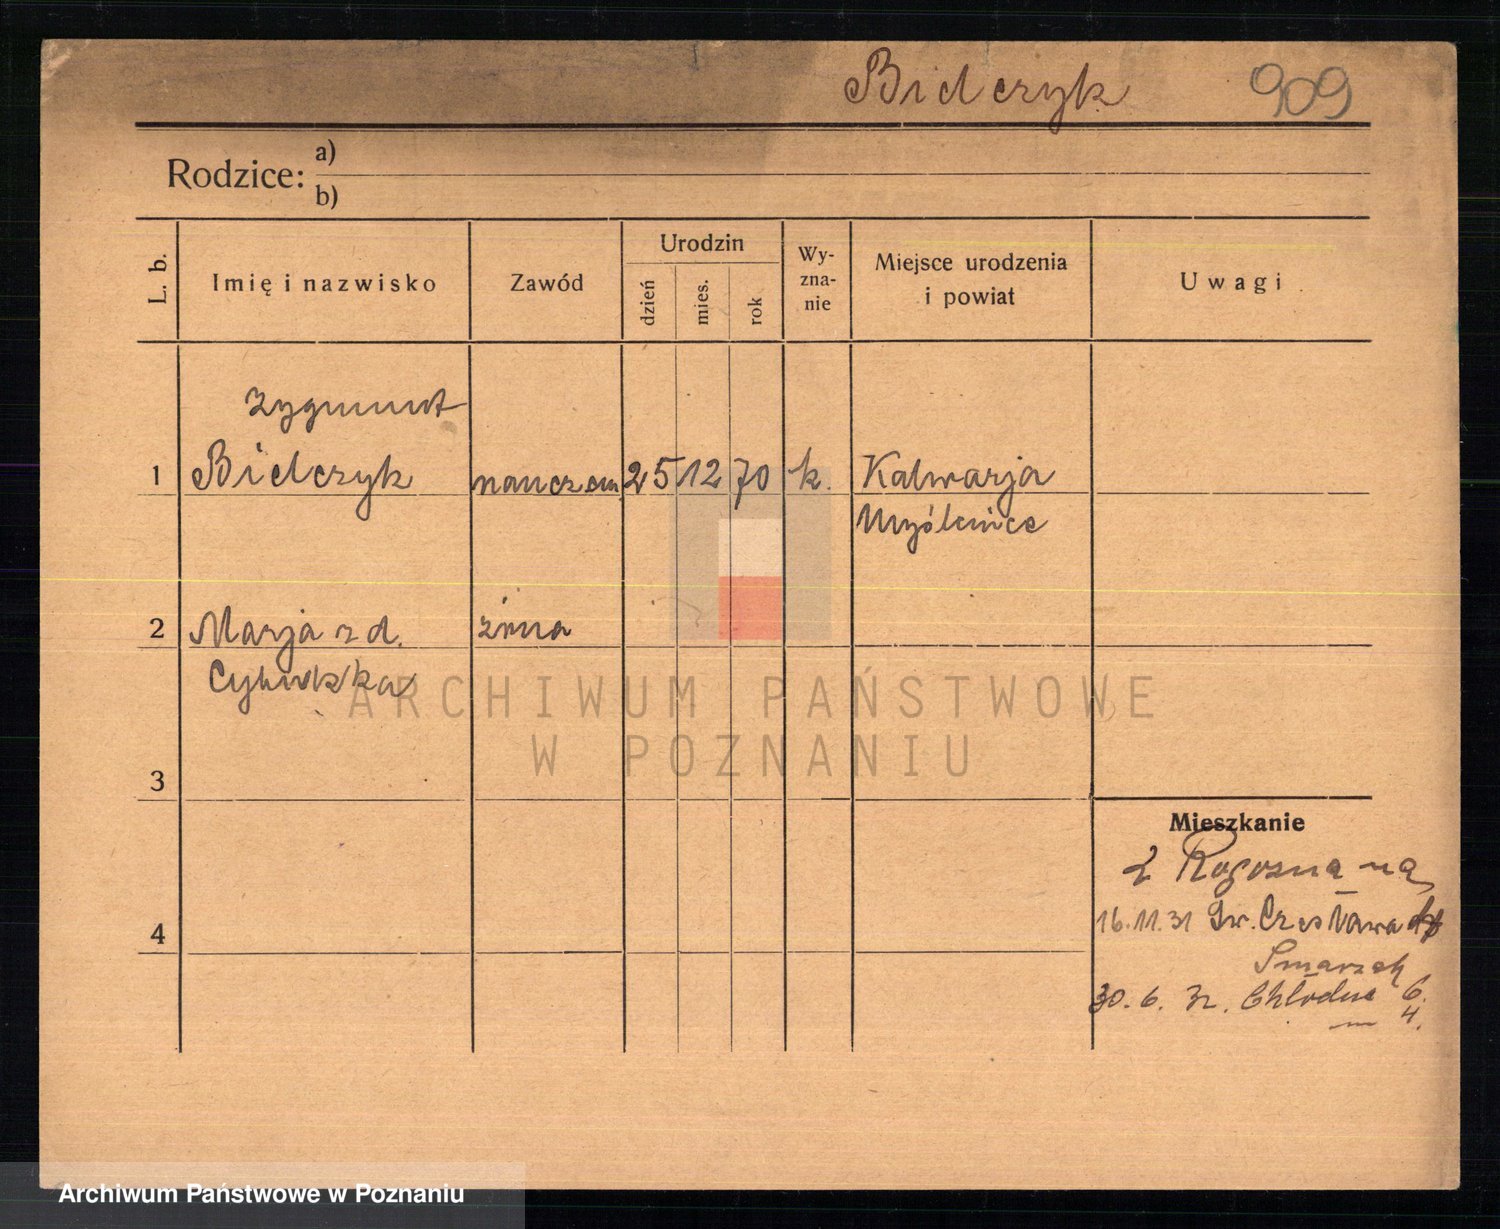 Bielczyk 909
Rodzice: a)
b)
L. b.
Imię i nazwisko
Zawód
Urodzin
dzień
mies.
rok
Wy-
zna-
nie
Miejsce urodzenia
i powiat
Uwagi
Zygmunt
1 Bielczyk naucz. em 25 12 70 k. Kalwarja
Myślenice
2 Marja z d. żona
ARCHIWUM PAŃSTWOWE
W POZNANIU
3
Mieszkanie
z Rogoźna na
16.11.31 Św. Czesława
4
30. 6. 32. Chłodna 6.
4.
Archiwum Państwowe w Poznaniu